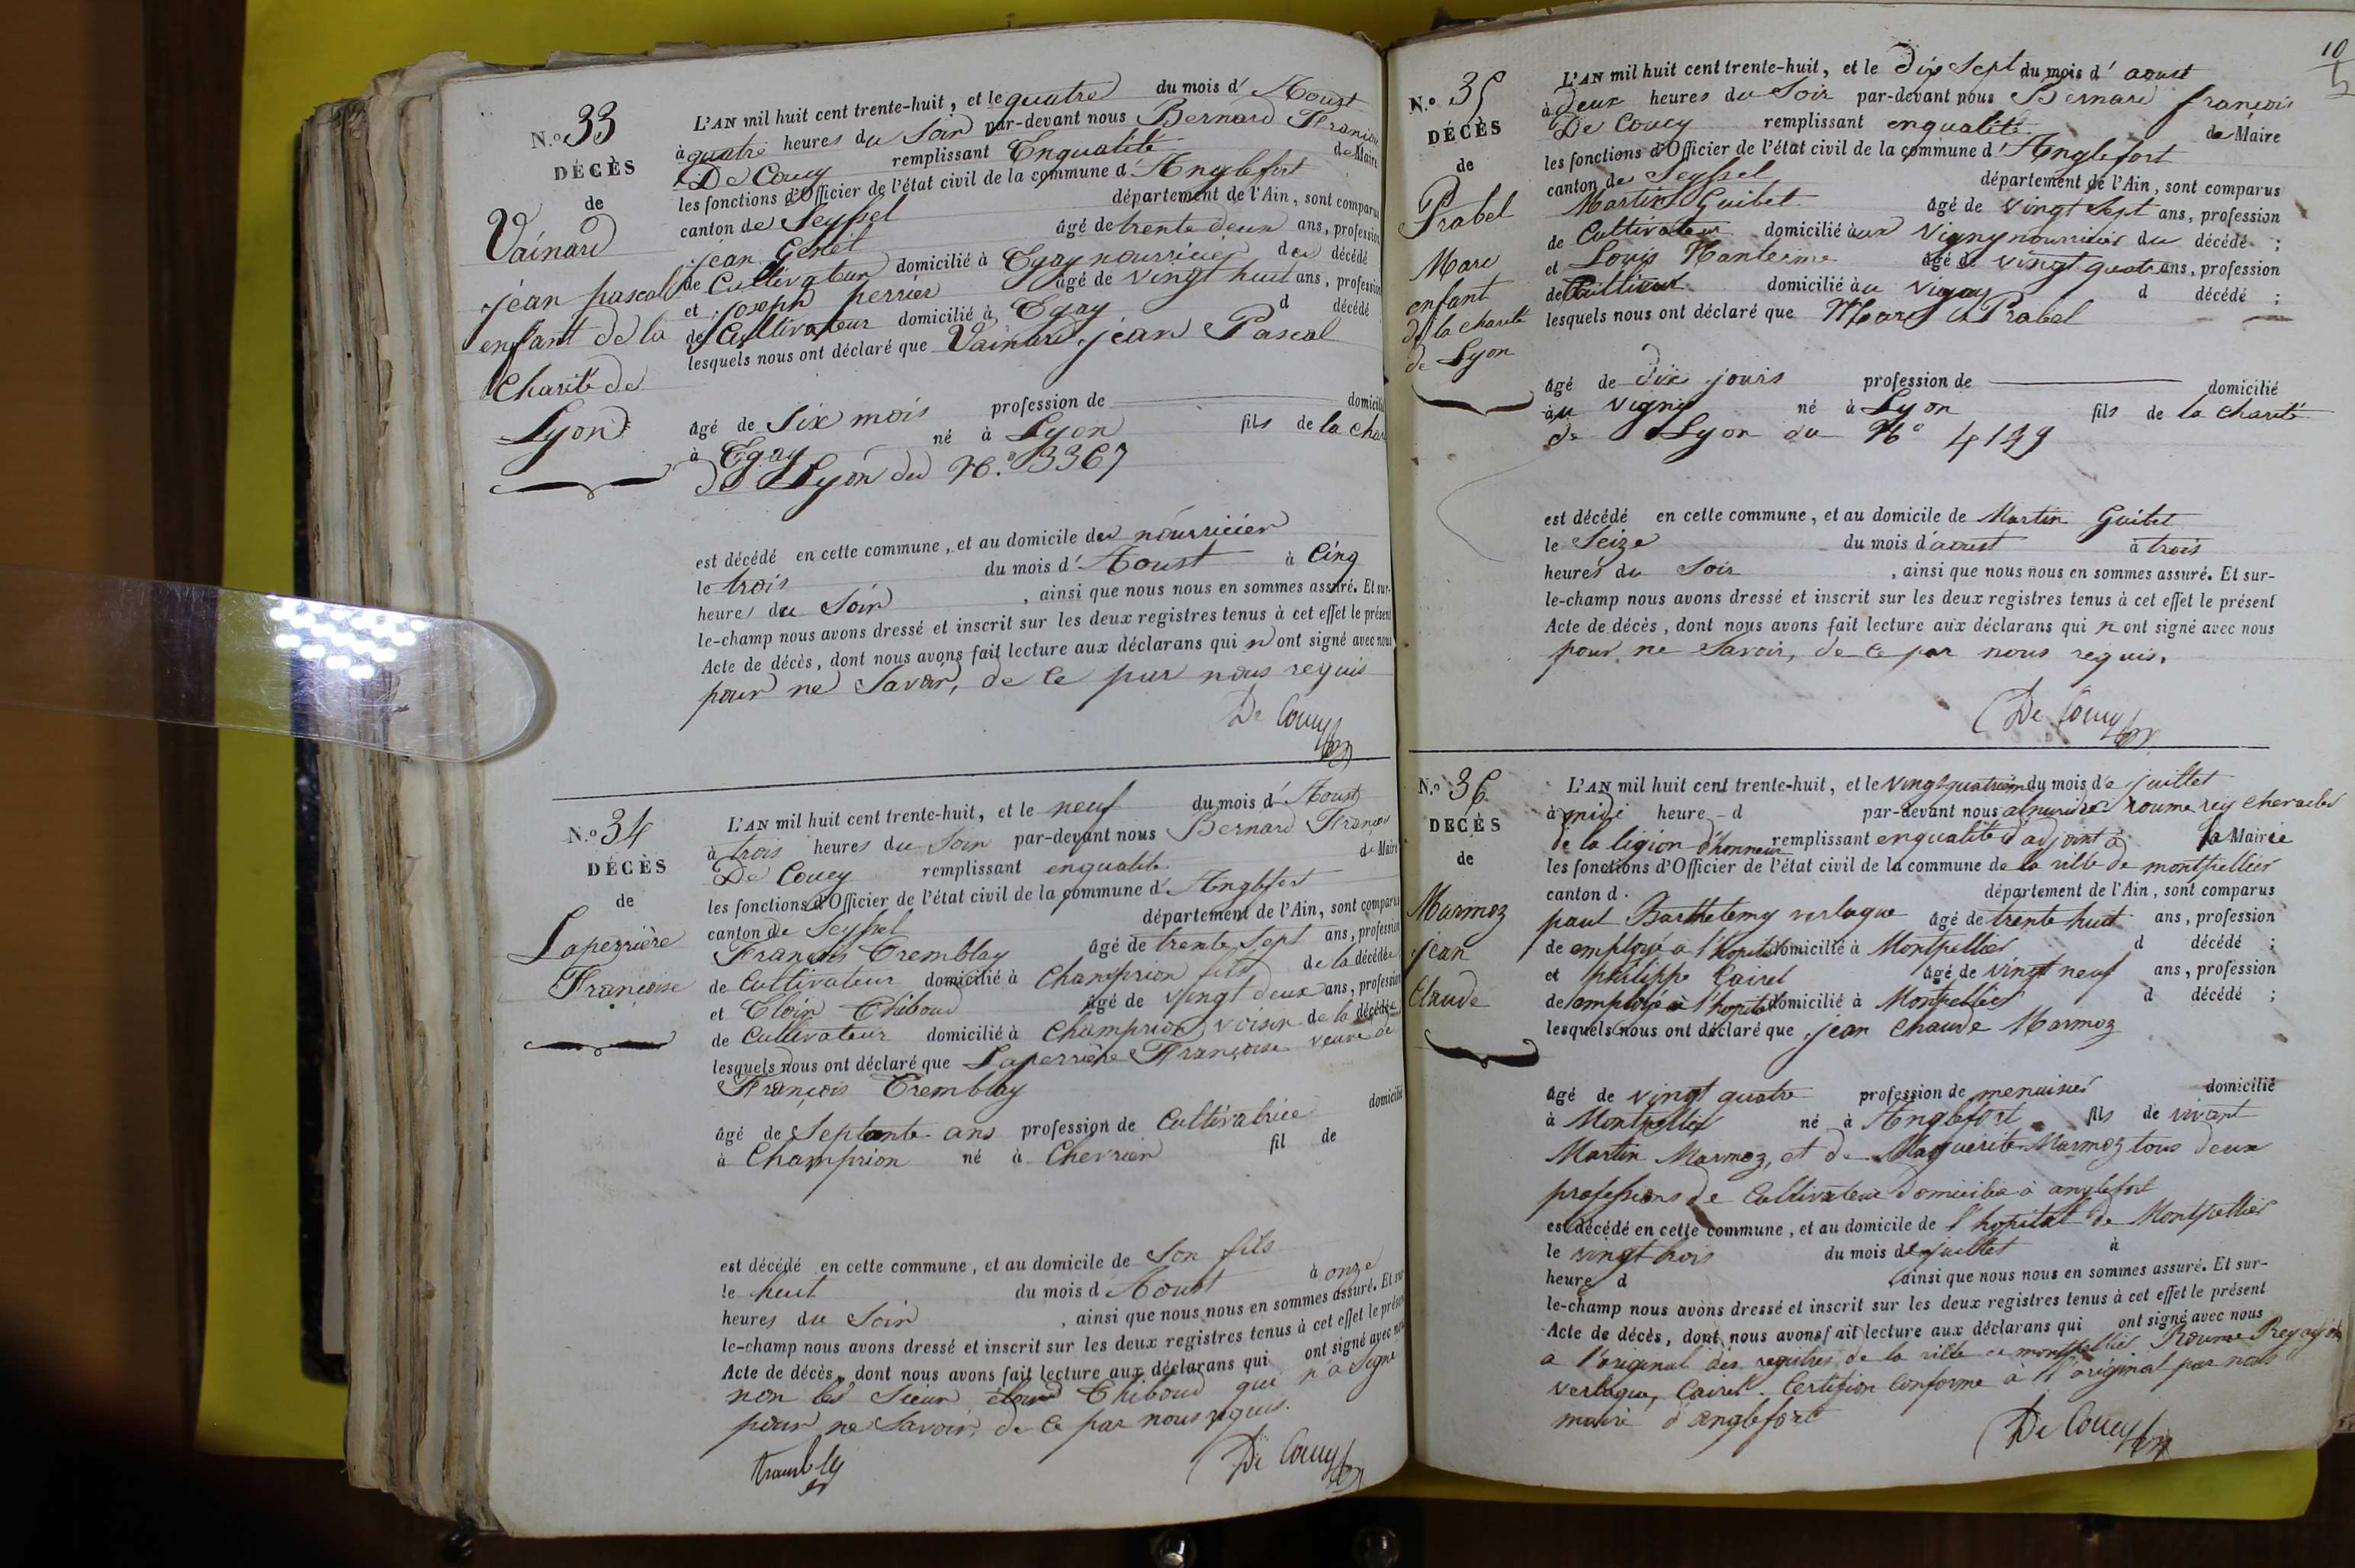 N.o 33
DÉCÈS
de
Vainard
jean pascal
enfant de la
Charité de
Lyon
L'AN mil huit cent trente-huit, et le quatre du mois d' Aoust
à quatre heures du Soir par-devant nous Bernard François
De Coucy remplissant Enqualité de Maire
les fonctions d'Officier de l'état civil de la commune d' Anglefort
canton de Seyssel département de l'Ain, sont comparus
jean Genet âgé de trente deux ans, profession
de Cultivateur domicilié à Egay nourricier du décédé
et joseph perrier âgé de vingt huit ans, profession
de Cultivateur domicilié à Egay d décédé
lesquels nous ont déclaré que Vainard jean Pascal
âgé de Six mois profession de domicilié
à Egay né à Lyon fils de la char
de Lyon du N.o 3367
est décédé en cette commune, et au domicile des nourricier
le trois du mois d' Aoust à Cinq
heures du Soir, ainsi que nous nous en sommes assuré. Et sur-
le-champ nous avons dressé et inscrit sur les deux registres tenus à cet effet le présent
Acte de décès, dont nous avons fait lecture aux déclarans qui n ont signé avec nous
pour ne Savoir, de ce par nous requis
De Coucy
N.o 34
DÉCÈS
de
Laperrière
Françoise
L'AN mil huit cent trente-huit, et le neuf du mois d' Aoust
à trois heures du Soir par-devant nous Bernard François
De Coucy remplissant enqualité de Maire
les fonctions d'Officier de l'état civil de la commune d' Anglefort
canton de Seyssel département de l'Ain, sont comparus
François Tremblay âgé de trente Sept ans, profession
de Cultivateur domicilié à Champrion fils de la décédée
et Eloin Thiboud âgé de vingt deux ans, profession
de Cultivateur domicilié à Champrion voisin de la décédée
lesquels nous ont déclaré que Laperrière Françoise veuve de
François Tremblay
âgé de Septante ans profession de Cultivatrice domicilié
à Champrion né à Chevrier fil de
est décédé en cette commune, et au domicile de Son fils
le huit du mois d Aoust à onze
heures du Soir, ainsi que nous nous en sommes assuré. Et sur
le-champ nous avons dressé et inscrit sur les deux registres tenus à cet effet le présent
Acte de décès, dont nous avons fait lecture aux déclarans qui ont signé avec nous
non le Sieur Thiboud qui n'a Signé
pour ne Savoir, de ce par nous requis.
De Coucy
10
N.o 35
DÉCÈS
de
Prabel
Marc
enfant
de la charité
de Lyon
L'AN mil huit cent trente-huit, et le dix Sept du mois d' aoust
à deux heures du Soir par-devant nous Bernard françois
De Coucy remplissant enqualité de Maire
les fonctions d'Officier de l'état civil de la commune d' Anglefort
canton de Seyssel département de l'Ain, sont comparus
Martin Guibet âgé de vingt Sept ans, profession
de Cultivateur domicilié à au Vigny nourricier du décédé ;
et Louis Nanterme âgé de vingt quatre ans, profession
de domicilié à au d décédé ;
lesquels nous ont déclaré que Marc Prabel
âgé de dix jours profession de domicilié
à au vigny né à Lyon fils de la charité
de Lyon du No 4149
est décédé en cette commune, et au domicile de Martin Guibet
le Seize du mois d'aoust à trois
heures du Soir, ainsi que nous nous en sommes assuré. Et sur-
le-champ nous avons dressé et inscrit sur les deux registres tenus à cet effet le présent
Acte de décès, dont nous avons fait lecture aux déclarans qui n ont signé avec nous
pour ne Savoir, de ce par nous requis.
De Coucy
N.o 36
DECÈS
de
Marmoz
jean
Claude
L'AN mil huit cent trente-huit, et le vingt quatrième du mois de juillet
à midi heure d par-devant nous roume rey chevalier
de la ligion d'honneur remplissant enqualité d'adjoint à la Mairie
les fonctions d'Officier de l'état civil de la commune de la ville de montpellier
canton d. département de l'Ain, sont comparus
paul Barthelemy verlaque âgé de trente huit ans, profession
de employé à l'hopital domicilié à Montpellier d décédé ;
et philippe Cairel âgé de vingt neuf ans, profession
de employé à l'hopital domicilié à Montpellier d décédé ;
lesquels nous ont déclaré que jean Chaude Marmoz
âgé de vingt quatre profession de menuisier domicilié
à Montpellier né à Anglefort fils de vivant
Martin Marmoz, et de Marguerite Marmoz tous deux
professions de Cultivateur domicilié à anglefort
est décédé en cette commune, et au domicile de l'hopital de Montpellier
le vingt trois du mois de juillet à
heure d ainsi que nous nous en sommes assuré. Et sur-
le-champ nous avons dressé et inscrit sur les deux registres tenus à cet effet le présent
Acte de décès, dont nous avons fait lecture aux déclarans qui ont signé avec nous
à l'original des registres de la ville de montpellier Roume Rey adjoint
verlaque, Cairel. Certifion Conforme à l'original par nous
maire d'anglefort
De Coucy